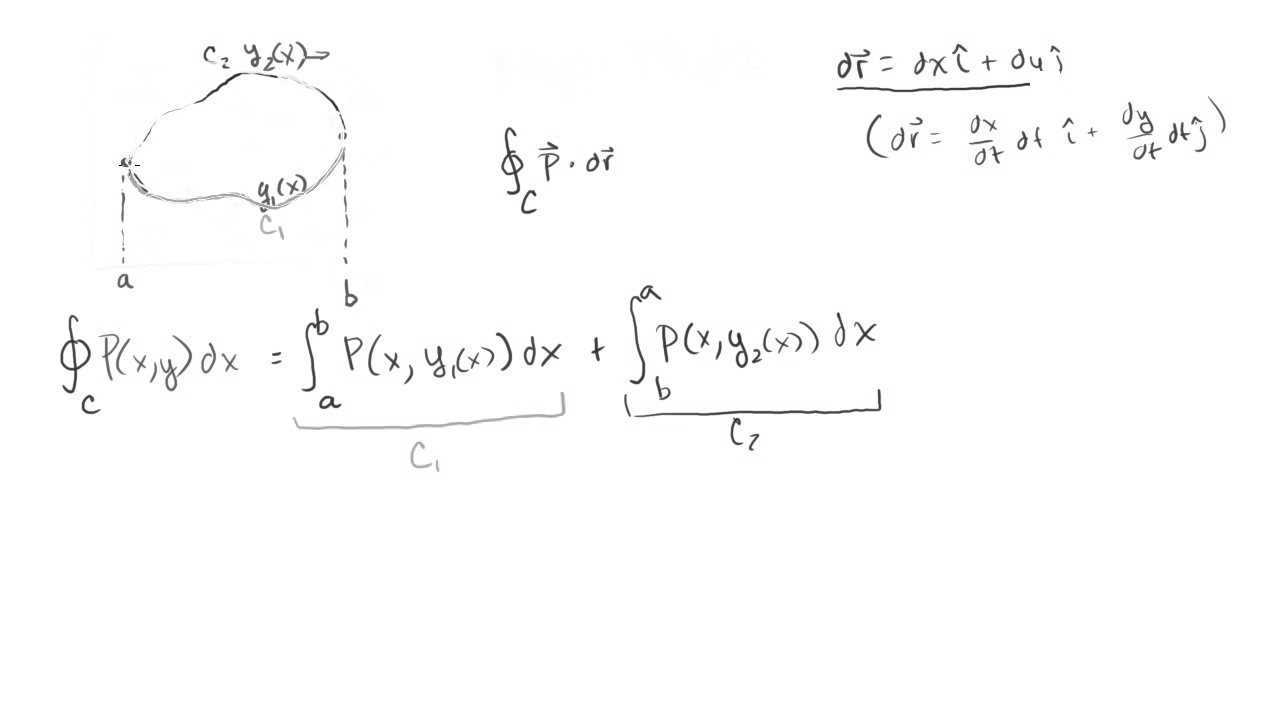 C₂ y₂(x)→
y₁(x)
C₁
a
b
∮_C P⃗ · dr⃗
dr⃗ = dx î + dy ĵ
(dr⃗ = dx/dt dt î + dy/dt dt ĵ)
∮_C P(x,y) dx = ∫_a^b P(x, y₁(x)) dx + ∫_b^a P(x, y₂(x)) dx
C₁
C₂